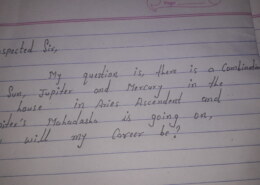 spected Sir,
My question is, there is a Combination
Sun, Jupiter and Mercury in the
house in Aries Ascendent and
iter's Mahadasha is going on,
will my Career be?